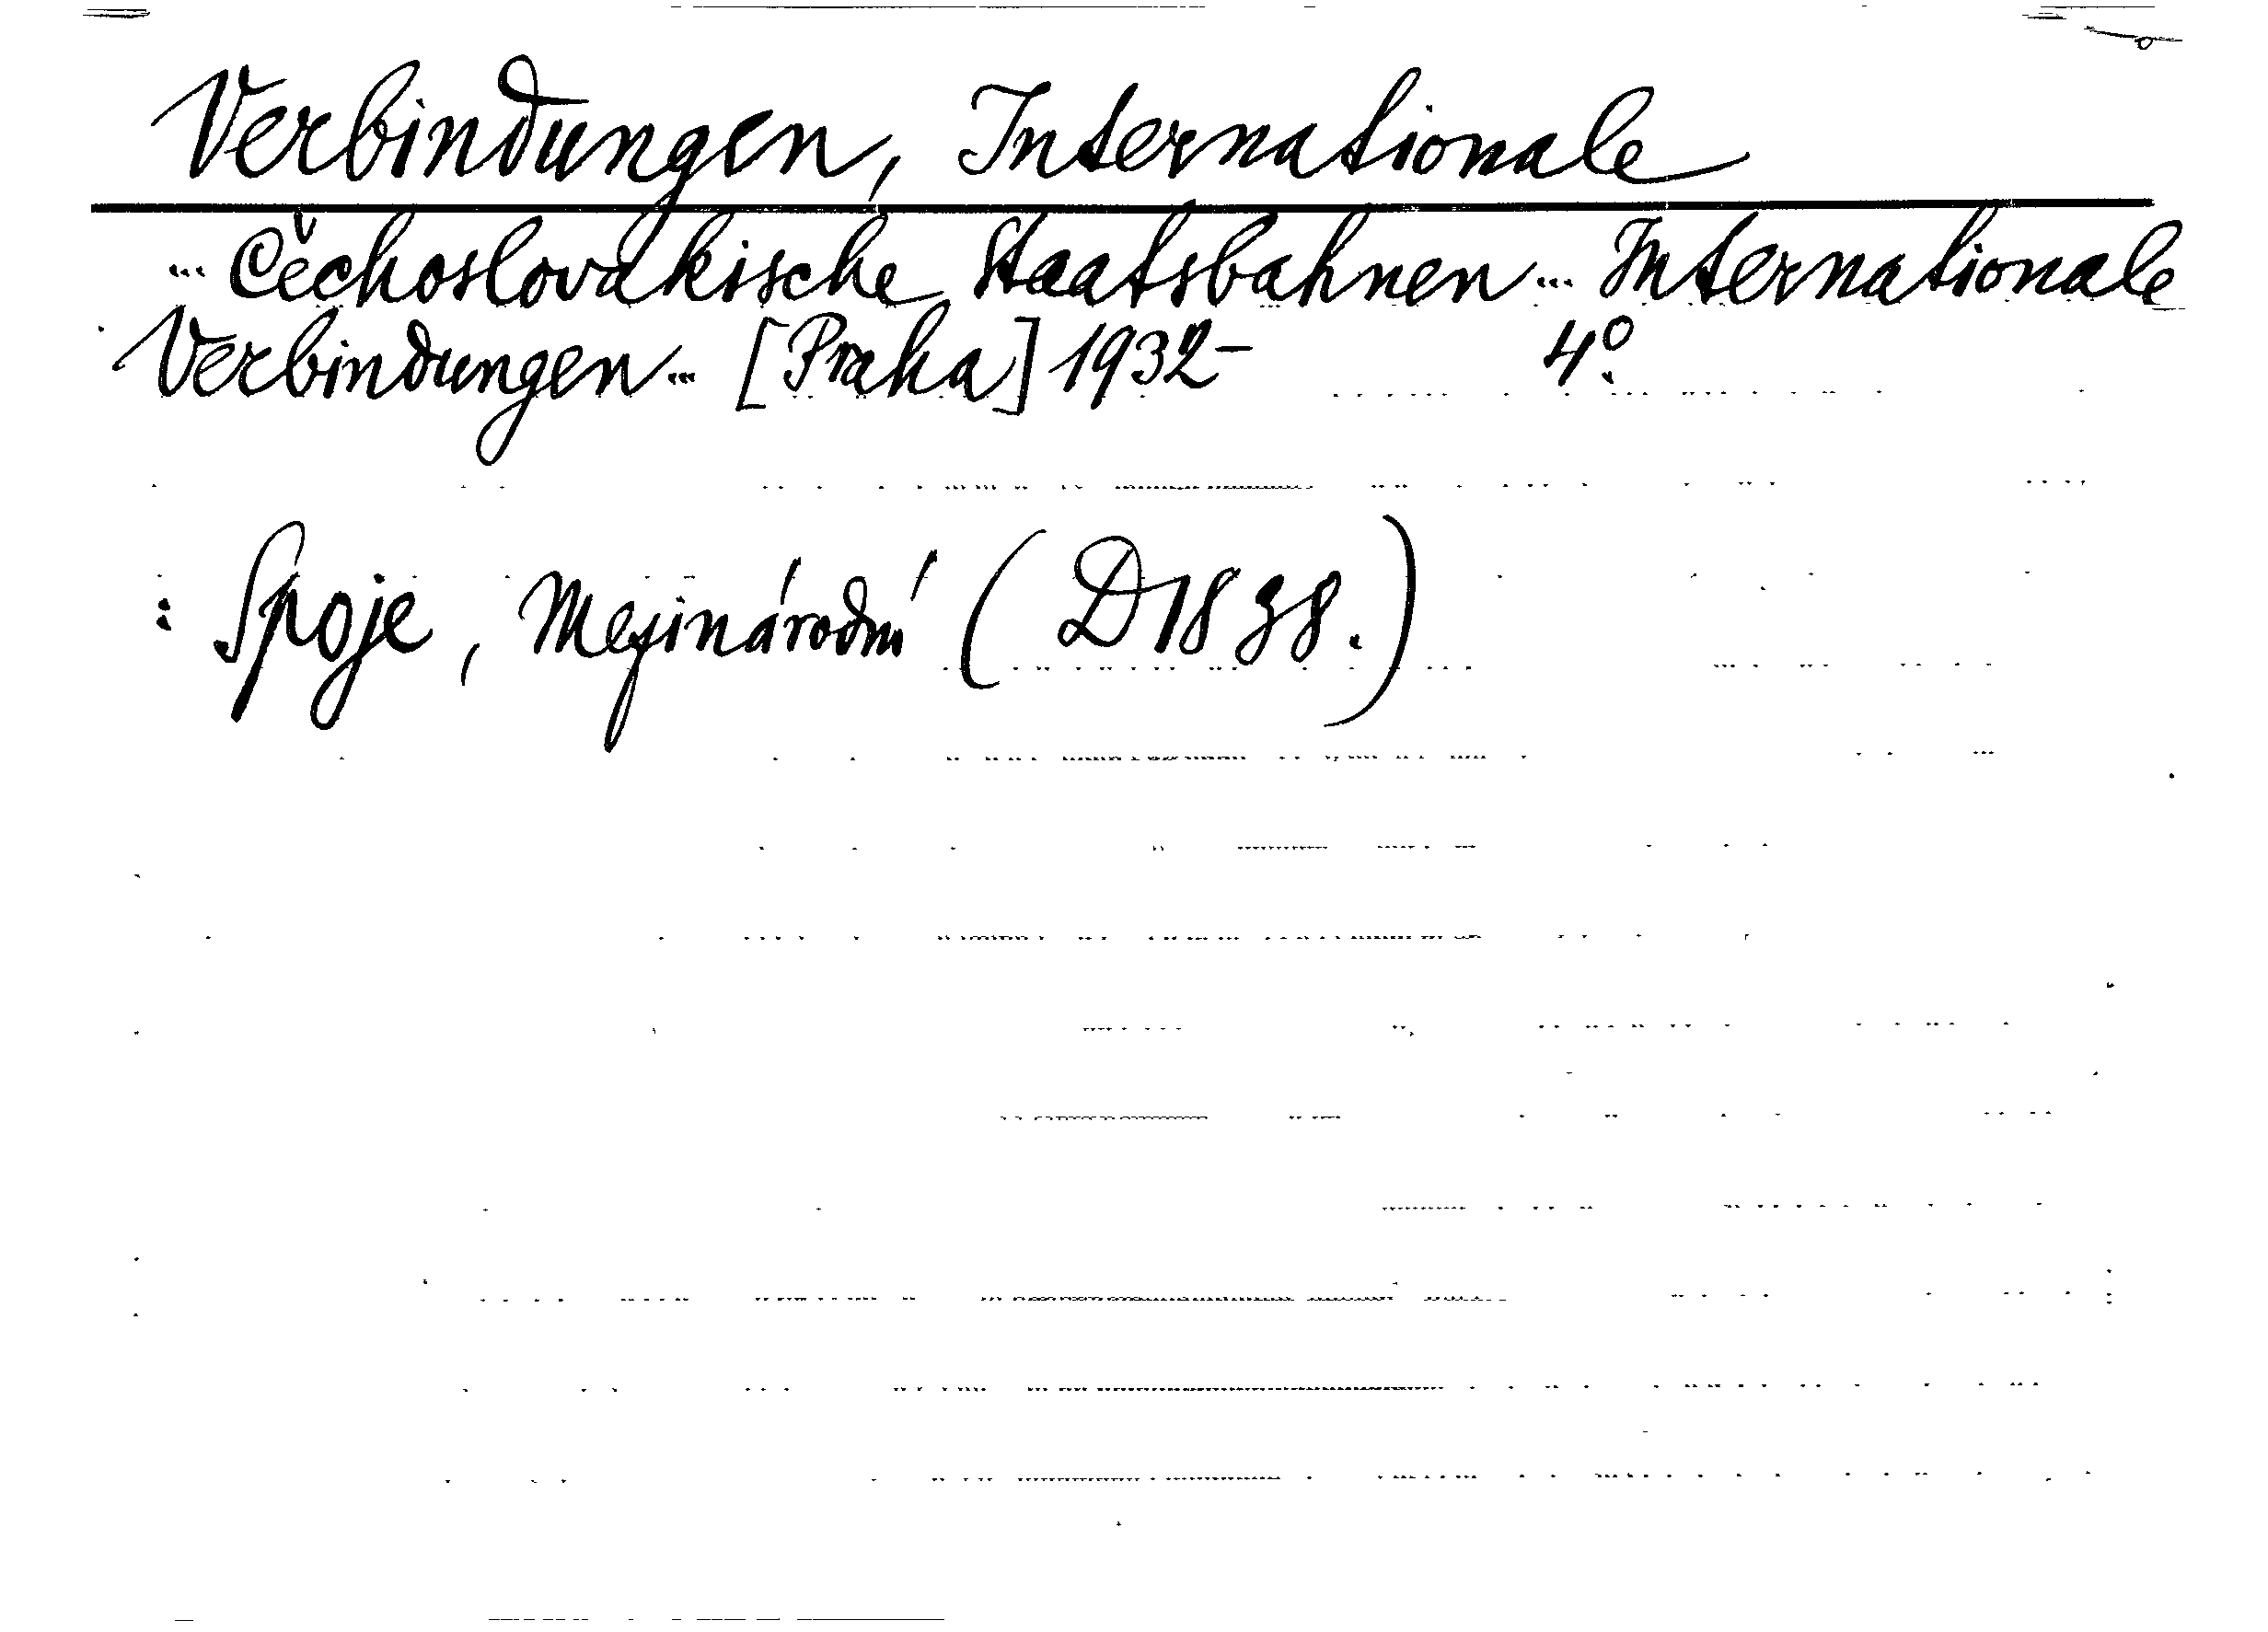 Verbindungen, Internationale
... Čechoslovakische Staatsbahnen ... Internationale
Verbindungen ... [Praha] 1932- 4°.
: Spoje, Mezinárodní (D 1838.)